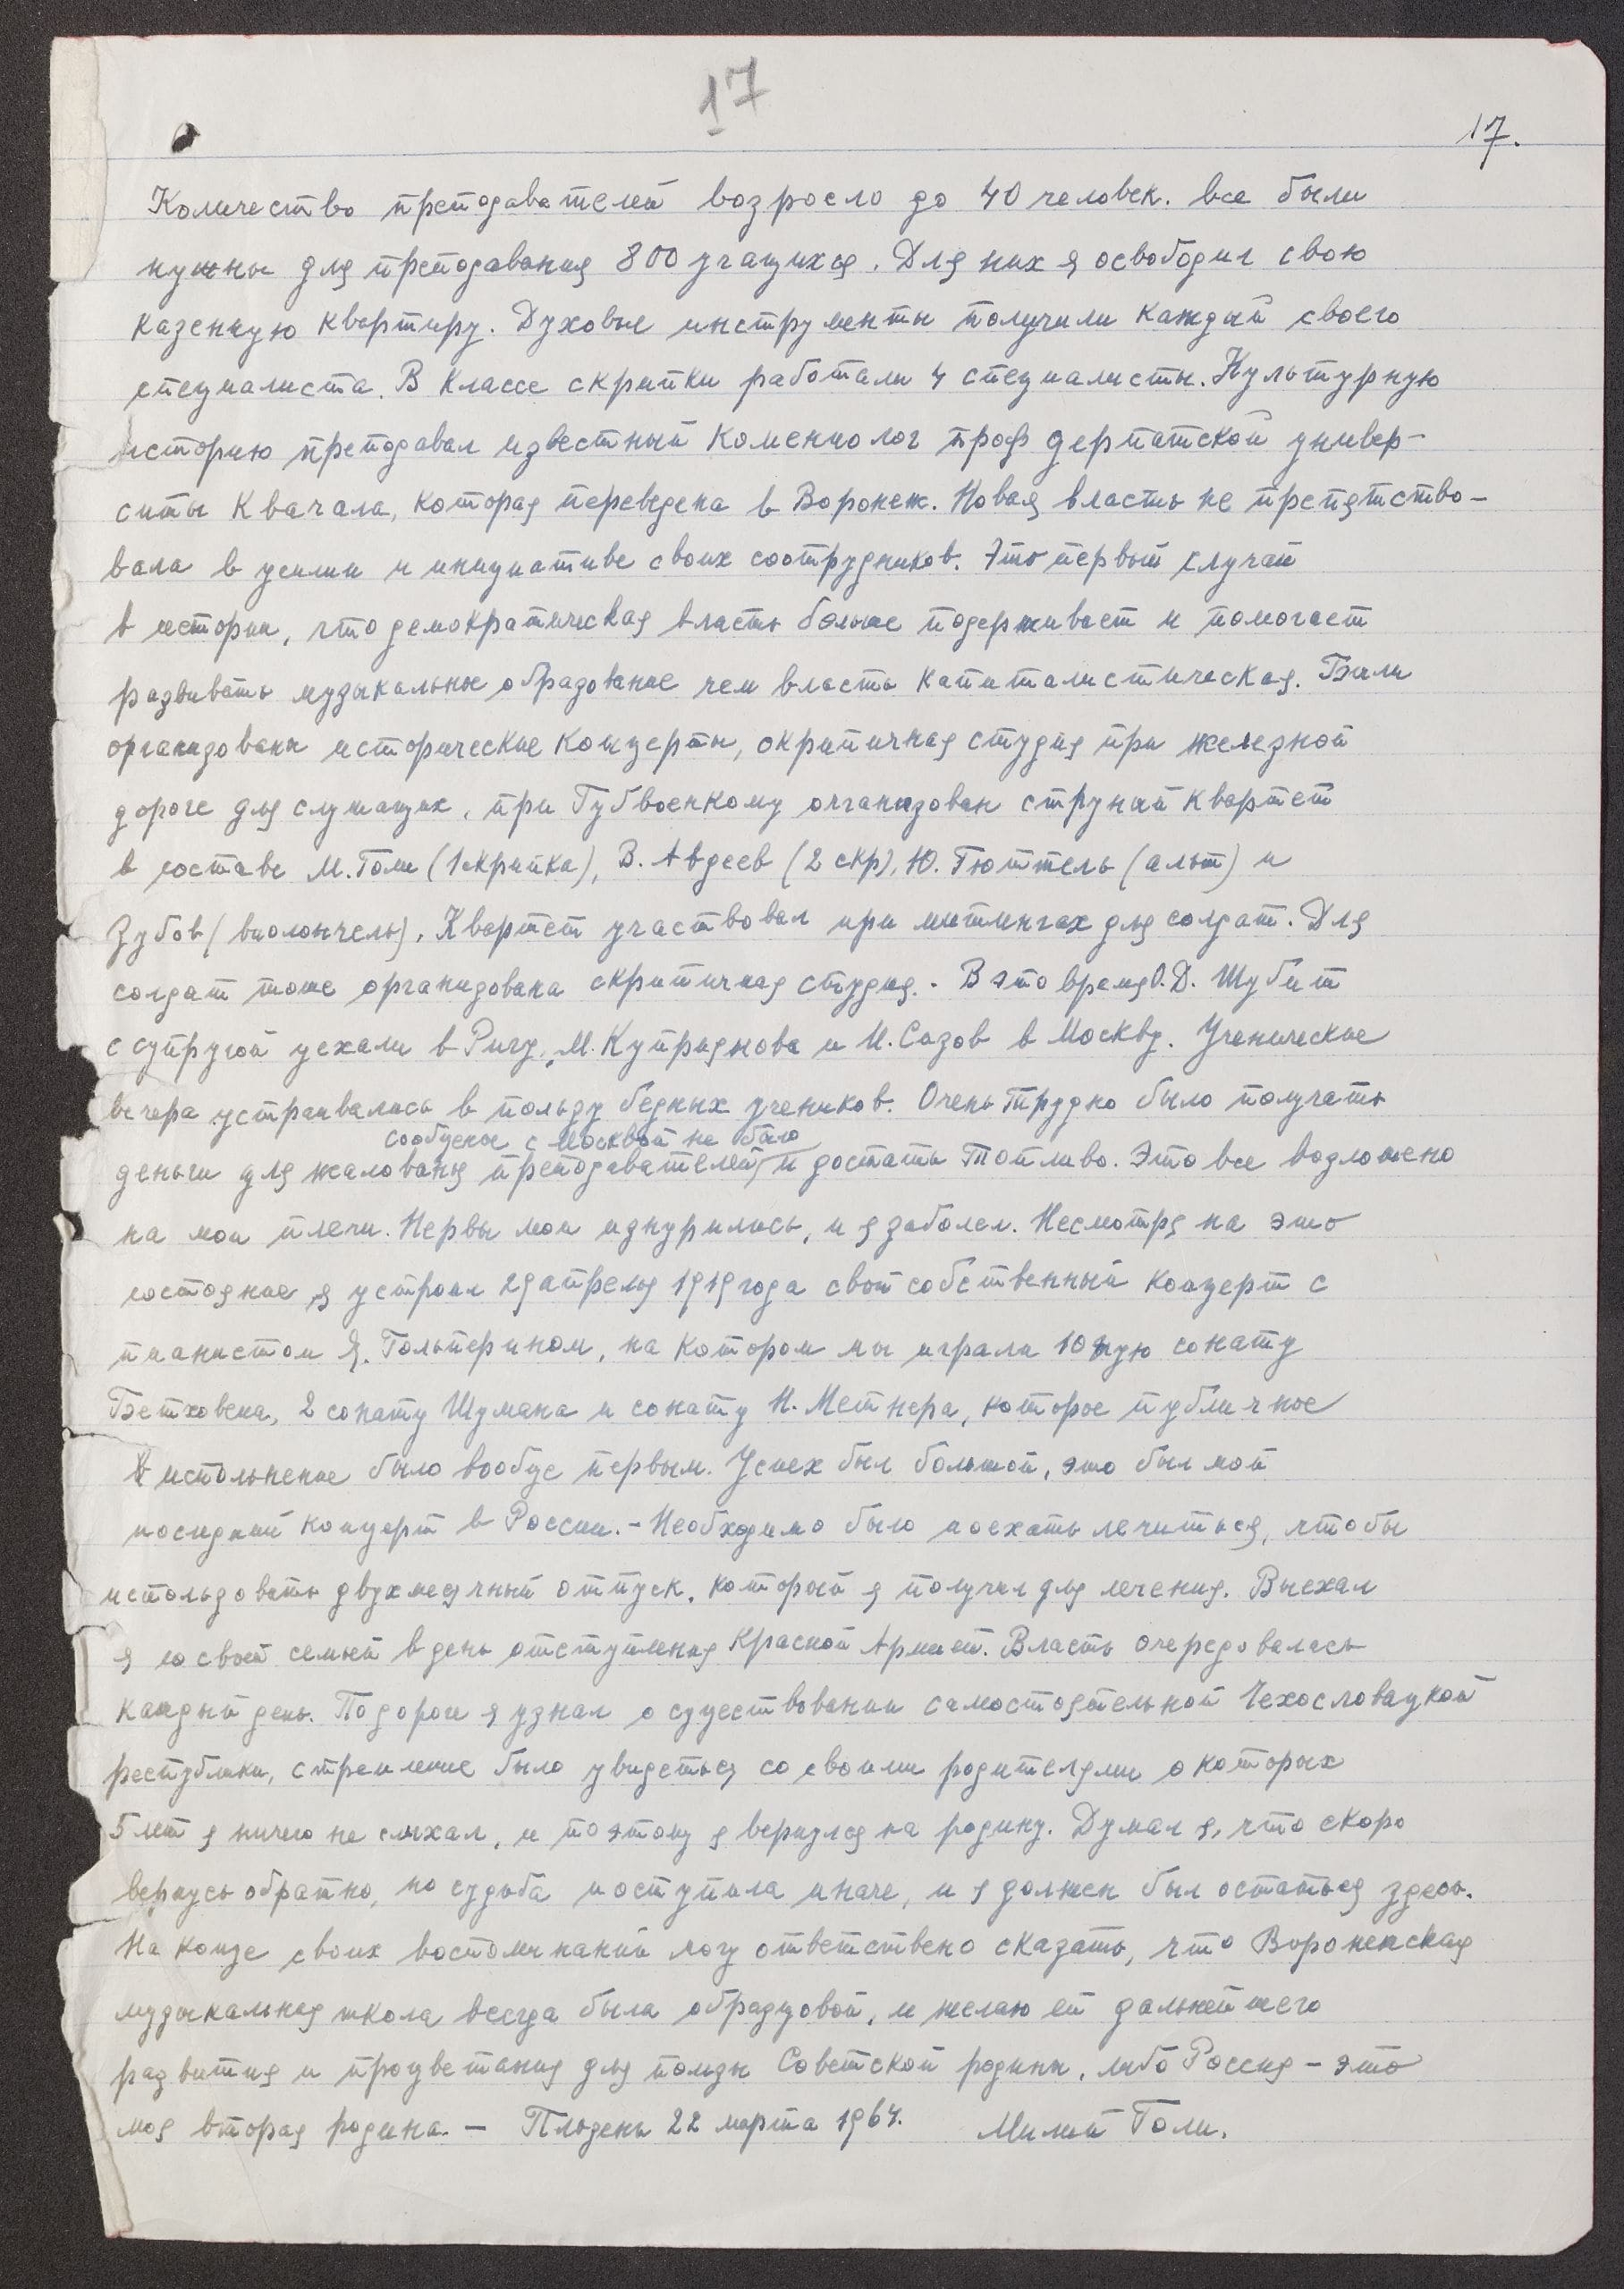 17
17.
Количество преподавателей возросло до 40 человек. все были
нужны для преподавания 800 учащихся. Для них я освободил свою
казенную квартиру. Духовые инструменты получили каждый своего
специалиста. В классе скрипки работали 4 специалисты. Культурную
историю преподавал известный комениолог проф дерпатской универ-
ситы Квачала, которая переведена в Воронеж. Новая власть не препятство-
вала в усилии и инициативе своих соотрудников. Это первый случай
в истории, что демократическая власть больше подерживает и помогает
развивать музыкальные образование чем власть капиталистическая. Были
организованы исторические концерты, скрипичная студия при железной
дороге для служащих, при Губвоенкому организован струный квартет
в составе М. Голи (1 скрипка), В. Авдеев (2 скр), Ю. Гюттель (альт) и
Зубов (виолончель), Квартет участвовал при митингах для солдат. Для
солдат тоже организована скрипичная студия. - В это время О.Д. Шубит
с супругой уехали в Ригу, М. Куприянова и И. Сазов в Москву. Ученические
вечера устраивались в пользу бедных учеников. Очень трудно было получать
сообщение с Москвой не было
деньги для жалованья преподавателей, и достать топливо. Это все возложено
на мои плечи. Нервы мои изнурились, и я заболел. Несмотря на это
состояние я устроил 29 апреля 1919 года свой собственный концерт с
пианистом Я. Гольперином, на котором мы играли 10ную сонату
Бетховена, 2 сонату Шумана и сонату Н. Метнера, которое публичное
исполнение было вообще первым. Успех был большой, это был мой
последний концерт в России. - Необходимо было поехать лечиться, чтобы
использовать двухмесячный отпуск, который я получил для лечения. Выехал
я со своей семьей в день отступления Красной Армией. Власть очередовалась
каждый день. По дороге я узнал о существовании самостоятельной Чехословацкой
республики, стремление было увидеться со своими родителями о которых
5 лет я ничего не слыхал, и поэтому я вернулся на родину. Думал я, что скоро
вернусь обратно, но судьба поступила иначе, и я должен был остаться здесь.
На конце своих воспоминаний могу ответствено сказать, что Воронежская
музыкальная школа всегда была образцовой, и желаю ей дальнейшего
развития и процветания для пользы Советской родины, либо Россия - это
моя вторая родина. - Пльзень 22 марта 1964. Милий Голи.